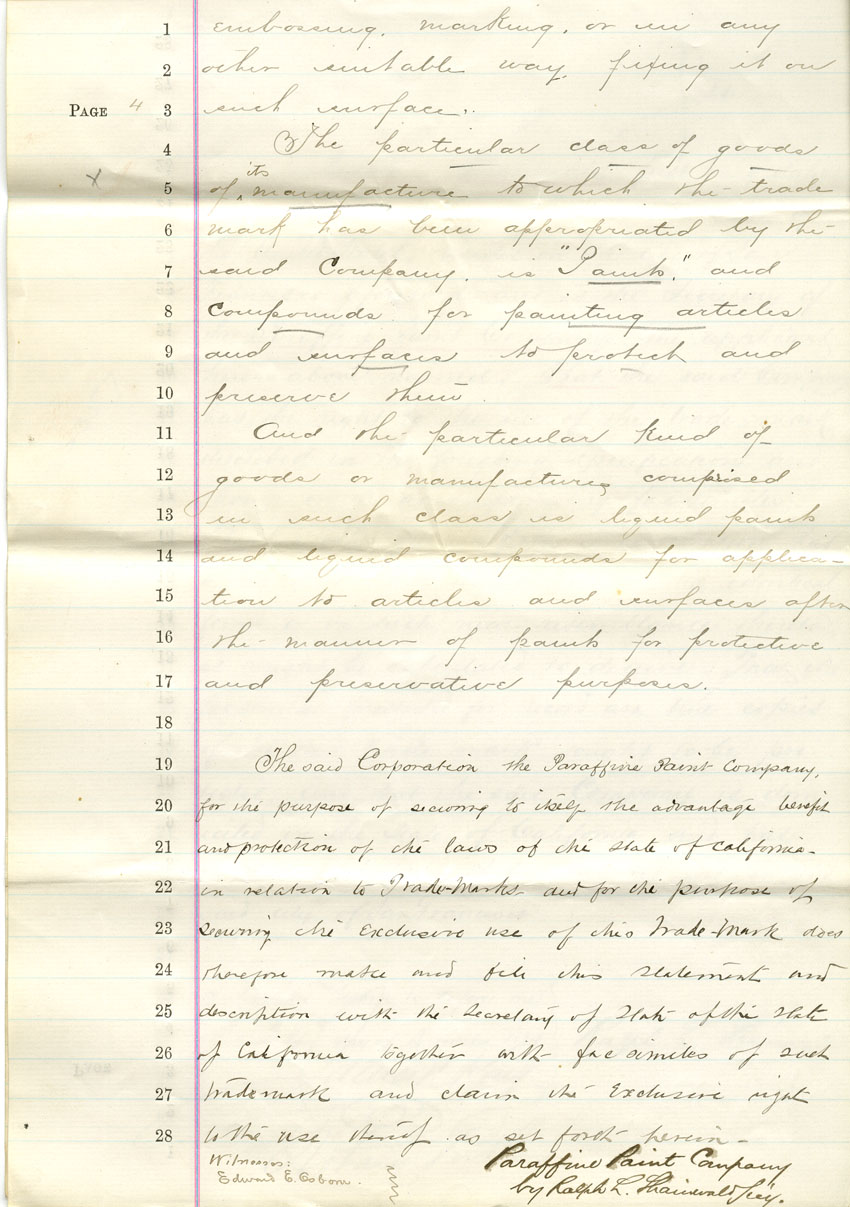 1 embossing, marking, or in any
2 other suitable way, fixing it on
PAGE 4 3 such surface.
4 The particular class of goods
its
X 5 of manufacture to which the trade
6 mark has been appropriated by the
7 said Company, is "Paints," and
8 Compounds for painting articles
9 and surfaces to protect and
10 preserve them.
11 And the particular kind of
12 goods or manufactures comprised
13 in such class is liquid paints
14 and liquid compounds for applica-
15 tion to articles and surfaces after
16 the manner of paints for protective
17 and preservative purposes.
18
19 The said Corporation the Paraffine Paint Company,
20 for the purpose of securing to itself the advantage benefit
21 and protection of the laws of the State of California-
22 in relation to Trade-Marks and for the purpose of
23 securing the Exclusive use of this Trade-Mark does
24 therefore make and file this statement and
25 description with the Secretary of State of the State
26 of California together with facsimiles of such
27 trademark and claim the Exclusive right
28 to the use thereof as set forth herein-
Witnesses: Paraffine Paint Company
Edward E. Osborn. by Ralph L. Shainwald Secy.